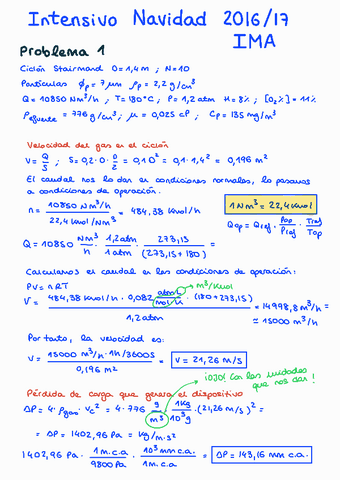 Intensivo Navidad 2016/17
IMA
Problema 1
Ciclón Stairmand D=1,4m ; N=10
Partículas ϕp = 7 μm ρp = 2,2 g/cm³
Q = 10850 Nm³/h , T=180°C , P=1,2atm H=8% ; [O₂%] = 11%
ρefluente = 776 g/cm³ ; μ = 0,025 cP ; Cp = 135 mg/m³
Velocidad del gas en el ciclón
V = Q/S ; S = 0,2·D·D/2 = 0,1D² = 0,1·1,4² = 0,196 m²
El caudal nos lo dan en condiciones normales, lo pasamos
a condiciones de operación.
n = 10850 Nm³/h / 22,4 Kmol/Nm³ = 484,38 Kmol/h
1 Nm³ = 22,4 Kmol
Qop = Qref · Pop/Pref · Tref/Top
Q = 10850 Nm³/h · 1,2atm/1 atm · 273,15/(273,15+180) =
Calculamos el caudal en las condiciones de operación:
PV = nRT
m³/Kmol
V = 484,38 Kmol/h · 0,082 atm·l/mol·K · (180+273,15) / 1,2 atm = 14998,8 m³/h ≈
≈ 15000 m³/h
Por tanto, la velocidad es:
V = 15000 m³/h · 1h/3600s / 0,196 m² = V = 21,26 m/s
¡OJO! Con las unidades
que nos dan!
Pérdida de carga que genera el dispositivo
ΔP = 4·ρgas·Vc² = 4·776 g/m³ · 1Kg/10³g · (21,26 m/s)² =
= ΔP = 1402,96 Pa = Kg/m·s²
1402,96 Pa · 1 m.c.a/9800 Pa · 10³ mm c.a./1 m.c.a. = ΔP = 143,16 mm c.a.